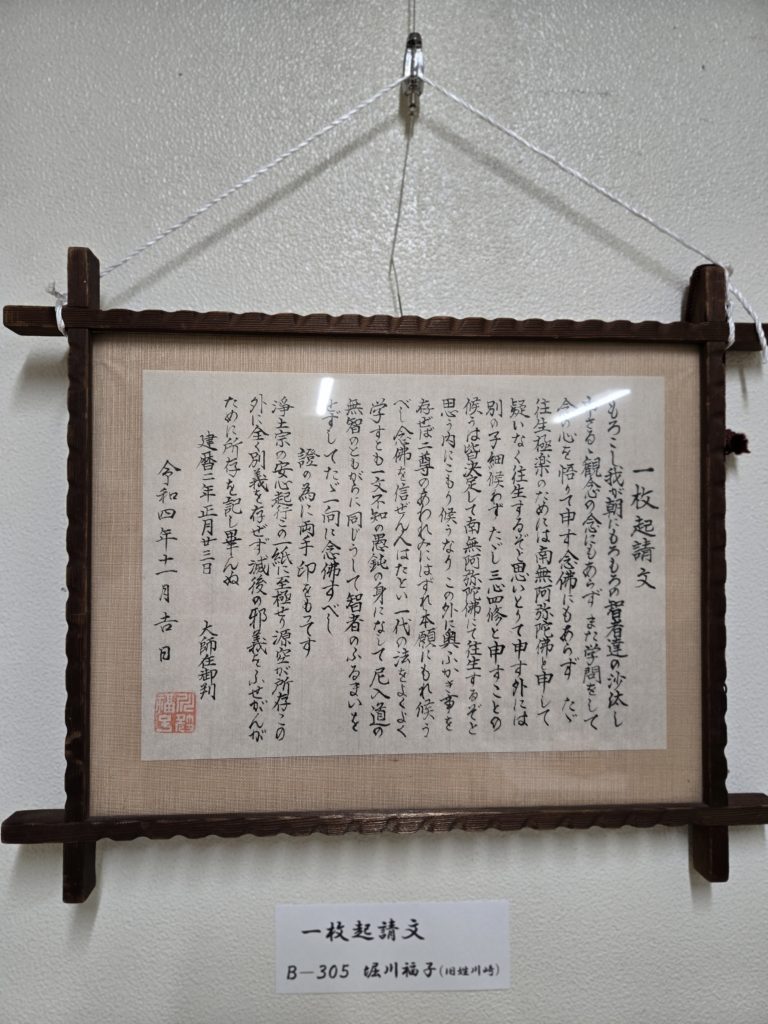 一枚起請文
もろこし我が朝にもろもろの智者達の沙汰し
申さるゝ観念の念にもあらず また学問をして
念の心を悟りて申す念佛にもあらず たゞ
往生極楽のためには南無阿弥陀佛と申して
疑いなく往生するぞと思いとりて申す外には
別の子細候わず たゞし三心四修と申すことの
候うは皆決定して南無阿弥陀佛にて往生するぞと
思う内にこもり候うなり この外に奥ふかき事を
存ぜば二尊のあわれみにはずれ本願にもれ候う
べし 念佛を信ぜん人はたとい一代の法をよくよく
学すとも一文不知の愚鈍の身になして尼入道の
無智のともがらに同じうして智者のふるまいを
せずしてたゞ一向に念佛すべし
證の為に両手印をもってす
浄土宗の安心起行この一紙に至極せり源空が所存この
外に全く別義を存ぜず滅後の邪義をふせがんが
ために所存を記し畢んぬ
建暦二年正月廿三日 大師在御判
令和四年十一月吉日
一枚起請文
B-305 堀川福子(旧姓川崎)